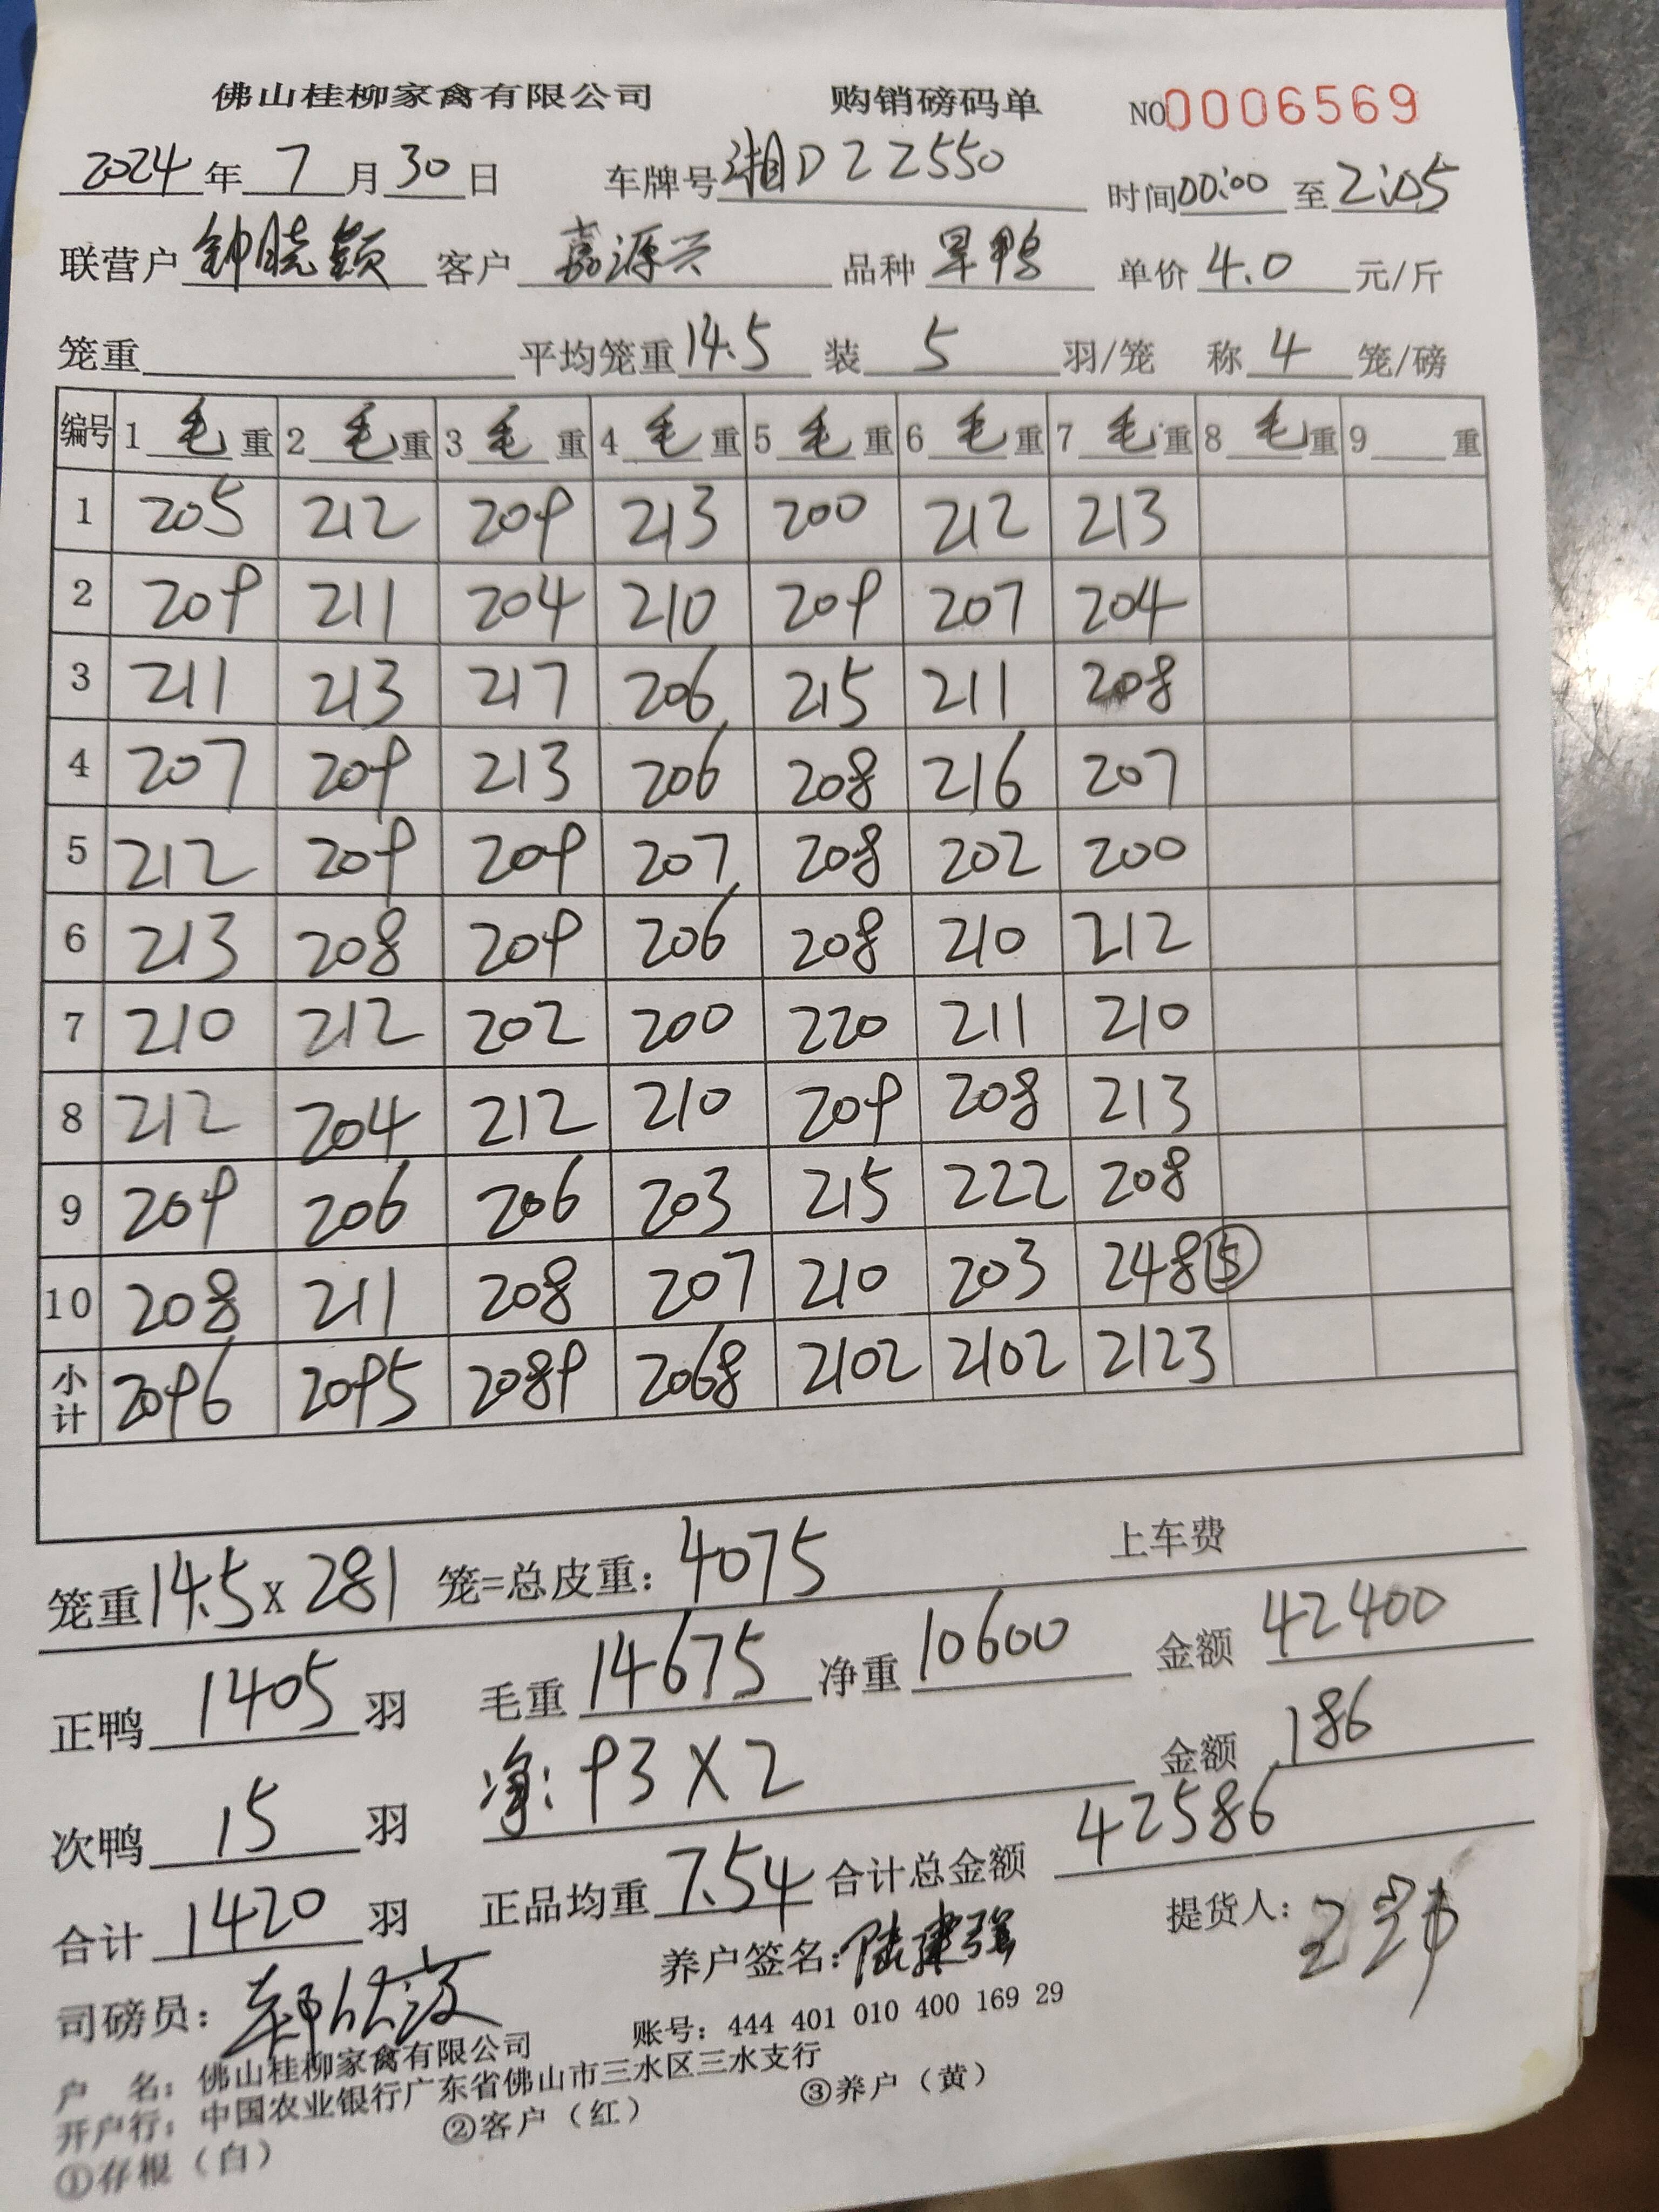 佛山桂柳家禽有限公司 购销磅码单 NO 0006569
2024年7月30日 车牌号湘DZZ550 时间00:00至2:05
联营户钟晓颖 客户嘉源兴 品种旱鸭 单价4.0元/斤
笼重 平均笼重14.5 装5羽/笼 称4笼/磅
编号 1毛重 2毛重 3毛重 4毛重 5毛重 6毛重 7毛重 8毛重 9重
1 205 212 209 213 200 212 213
2 209 211 204 210 209 207 204
3 211 213 217 206 215 211 208
4 207 209 213 206 208 216 207
5 212 209 209 207 208 202 200
6 213 208 209 206 208 210 212
7 210 212 202 200 220 211 210
8 212 204 212 210 209 208 213
9 209 206 206 203 215 222 208
10 208 211 208 207 210 203 248⑤
小计 2096 2095 2089 2068 2102 2102 2123
笼重14.5×281 笼=总皮重：4075 上车费
正鸭1405羽 毛重14675 净重10600 金额42400
次鸭15羽 净:93×2 金额186
合计1420羽 正品均重7.54 合计总金额42586
司磅员： 养户签名：陆建强 提货人：
户 名：佛山桂柳家禽有限公司 账号：444 401 010 400 169 29
开户行：中国农业银行广东省佛山市三水区三水支行
①存根（白） ②客户（红） ③养户（黄）